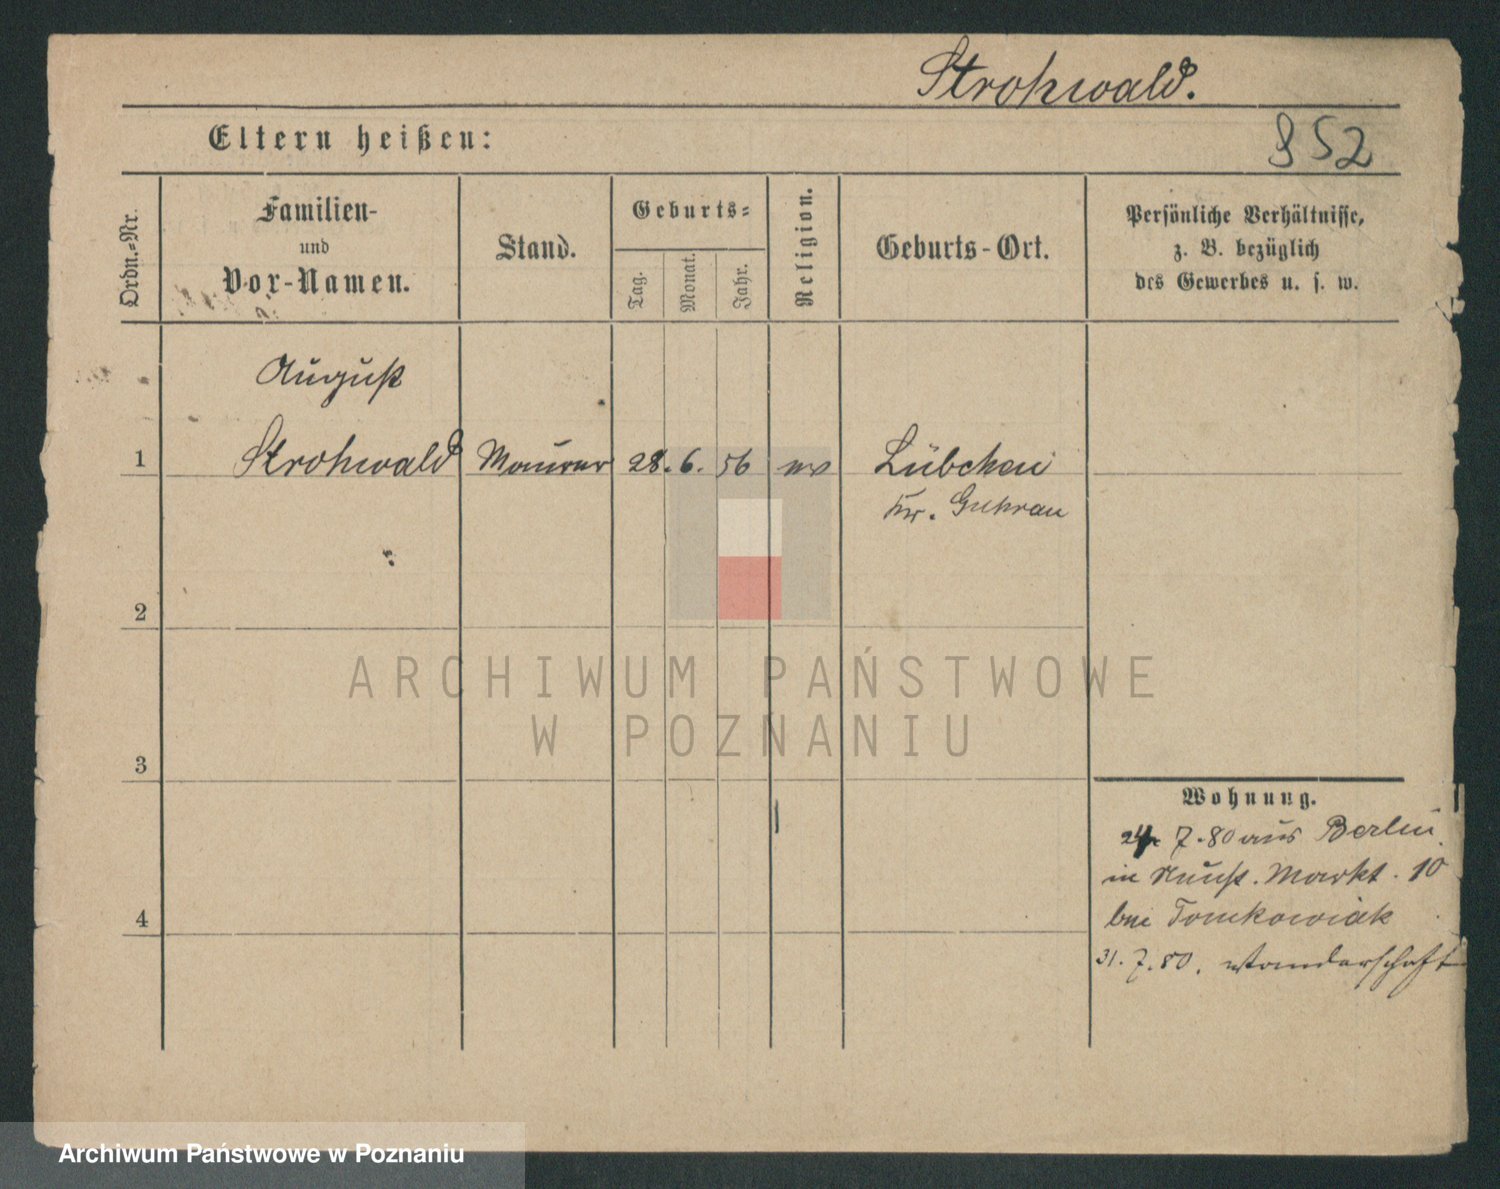 Strohwald.
Eltern heißen:
952
Ordn.-Nr.
Familien-
und
Vor-Namen.
Stand.
Geburts-
Tag.
Monat.
Jahr.
Religion.
Geburts-Ort.
Persönliche Verhältnisse,
z. B. bezüglich
des Gewerbes u. s. w.
August
1 Strohwald Maurer 28. 6. 56 ev Lübchen
Kr. Guhrau
2
3
4
Wohnung.
24. 7.80 aus Berlin
in Neust. Markt. 10
bei Tomkowiak
31. 7.80. Wanderschaft
ARCHIWUM PAŃSTWOWE
W POZNANIU
Archiwum Państwowe w Poznaniu